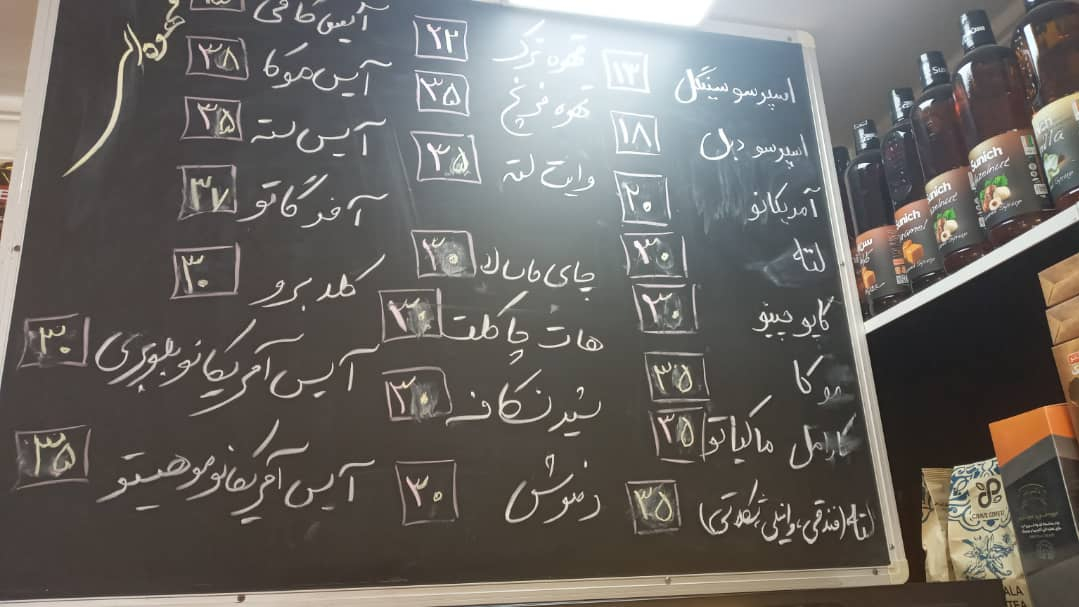 قهوه ای
اسپرسو سینگل ۱۳
اسپرسو دبل ۱۸
آمریکانو ۲۰
لته ۳۰
کاپوچینو ۳۰
موکا ۳۵
کارامل ماکیاتو ۳۵
لته (فندقی، وانیلی، شکلاتی) ۳۵
قهوه ترک ۲۲
قهوه فرنچ ۲۵
وایت لته ۳۵
چای ماسالا ۳۰
هات چاکلت ۳۰
شیر نسکافه ۳۰
دمنوش ۳۰
آیس کافی
آیس موکا ۳۸
آیس لته ۳۵
آفوگاتو ۳۷
کلد برو ۳۰
آیس آمریکانو بلوبری ۳۰
آیس آمریکانو موهیتو ۳۵
Sunich
Sunich
Sunich